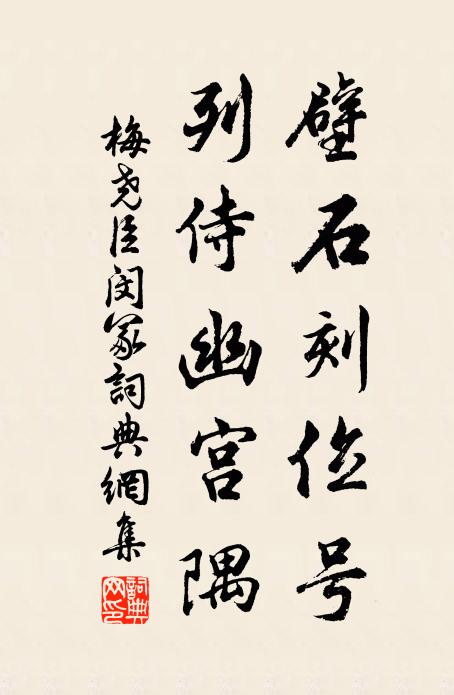 壁石刻位号
列侍幽宫隅
梅尧臣闵冢詞典網集
詞典